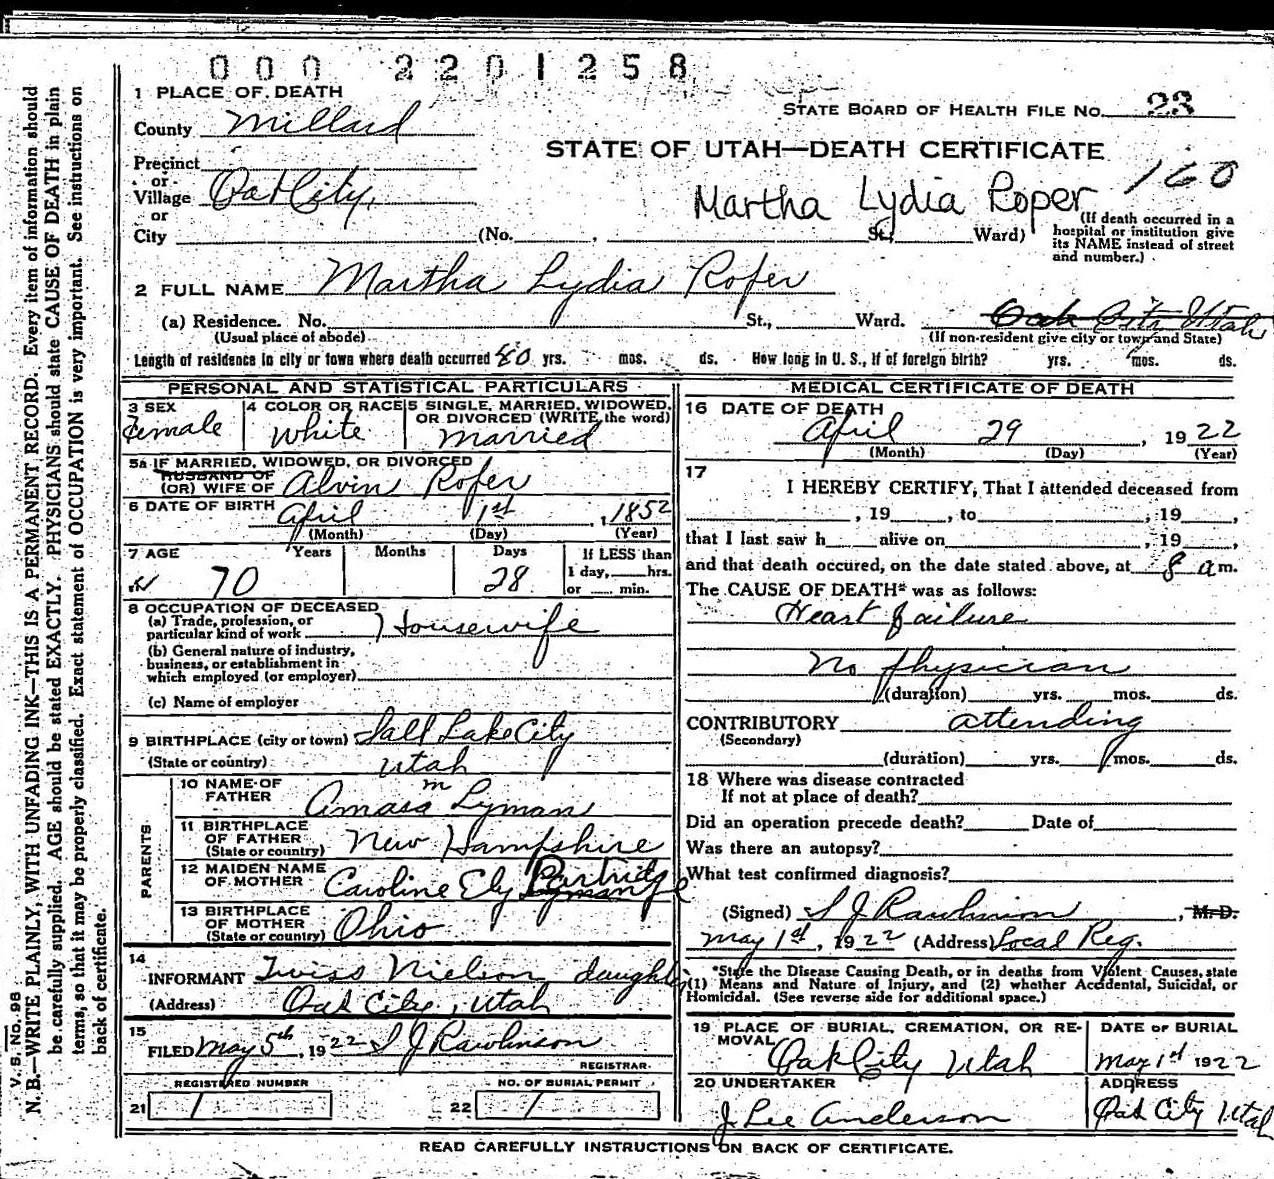 000 2201258
1 PLACE OF DEATH
STATE BOARD OF HEALTH FILE NO. 23
County Millard
STATE OF UTAH—DEATH CERTIFICATE
160
Precinct
or
Village Oak City,
Martha Lydia Roper
or
City (No. , St., Ward)
(If death occurred in a
hospital or institution give
its NAME instead of street
and number.)
2 FULL NAME Martha Lydia Roper
(a) Residence. No. St., Ward. Oak City Utah
(Usual place of abode) (If non-resident give city or town and State)
Length of residence in city or town where death occurred 50 yrs. mos. ds. How long in U. S., if of foreign birth? yrs. mos. ds.
PERSONAL AND STATISTICAL PARTICULARS
3 SEX
Female
4 COLOR OR RACE
White
5 SINGLE, MARRIED, WIDOWED,
OR DIVORCED (WRITE the word)
Married
5a IF MARRIED, WIDOWED, OR DIVORCED
HUSBAND OF
(OR) WIFE OF Alvin Roper
6 DATE OF BIRTH April 1st, 1852
(Month) (Day) (Year)
7 AGE Years Months Days If LESS than
1 day, hrs.
or min.
70 28
8 OCCUPATION OF DECEASED
(a) Trade, profession, or
particular kind of work Housewife
(b) General nature of industry,
business, or establishment in
which employed (or employer)
(c) Name of employer
9 BIRTHPLACE (city or town) Salt Lake City
(State or country) Utah
PARENTS
10 NAME OF
FATHER Amasa m Lyman
11 BIRTHPLACE
OF FATHER
(State or country) New Hampshire
12 MAIDEN NAME
OF MOTHER Caroline Ely Partridge Lyman
13 BIRTHPLACE
OF MOTHER
(State or country) Ohio
14
INFORMANT Twiss Nielson daughter
(Address) Oak City, Utah
15
FILED May 5th, 1922 S J Rawlinson
REGISTRAR
REGISTERED NUMBER NO. OF BURIAL PERMIT
21 1 22 1
MEDICAL CERTIFICATE OF DEATH
16 DATE OF DEATH
April 29, 1922
(Month) (Day) (Year)
17
I HEREBY CERTIFY, That I attended deceased from
, 19 , to , 19 ,
that I last saw h alive on , 19 ,
and that death occured, on the date stated above, at 8 a m.
The CAUSE OF DEATH* was as follows:
Heart failure
No physician
(duration) yrs. mos. ds.
CONTRIBUTORY attending
(Secondary)
(duration) yrs. mos. ds.
18 Where was disease contracted
If not at place of death?
Did an operation precede death? Date of
Was there an autopsy?
What test confirmed diagnosis?
(Signed) S J Rawlinson, M. D.
May 1st, 1922 (Address) Local Reg.
*State the Disease Causing Death, or in deaths from Violent Causes, state
(1) Means and Nature of Injury, and (2) whether Accidental, Suicidal, or
Homicidal. (See reverse side for additional space.)
19 PLACE OF BURIAL, CREMATION, OR RE-
MOVAL
Oak City Utah
DATE OF BURIAL
May 1st 1922
20 UNDERTAKER
J. Lee Anderson
ADDRESS
Oak City Utah
READ CAREFULLY INSTRUCTIONS ON BACK OF CERTIFICATE.
V. S. No. 98
N. B.—WRITE PLAINLY, WITH UNFADING INK—THIS IS A PERMANENT RECORD. Every item of information should
be carefully supplied. AGE should be stated EXACTLY. PHYSICIANS should state CAUSE OF DEATH in plain
terms, so that it may be properly classified. Exact statement of OCCUPATION is very important. See instructions on
back of certificate.